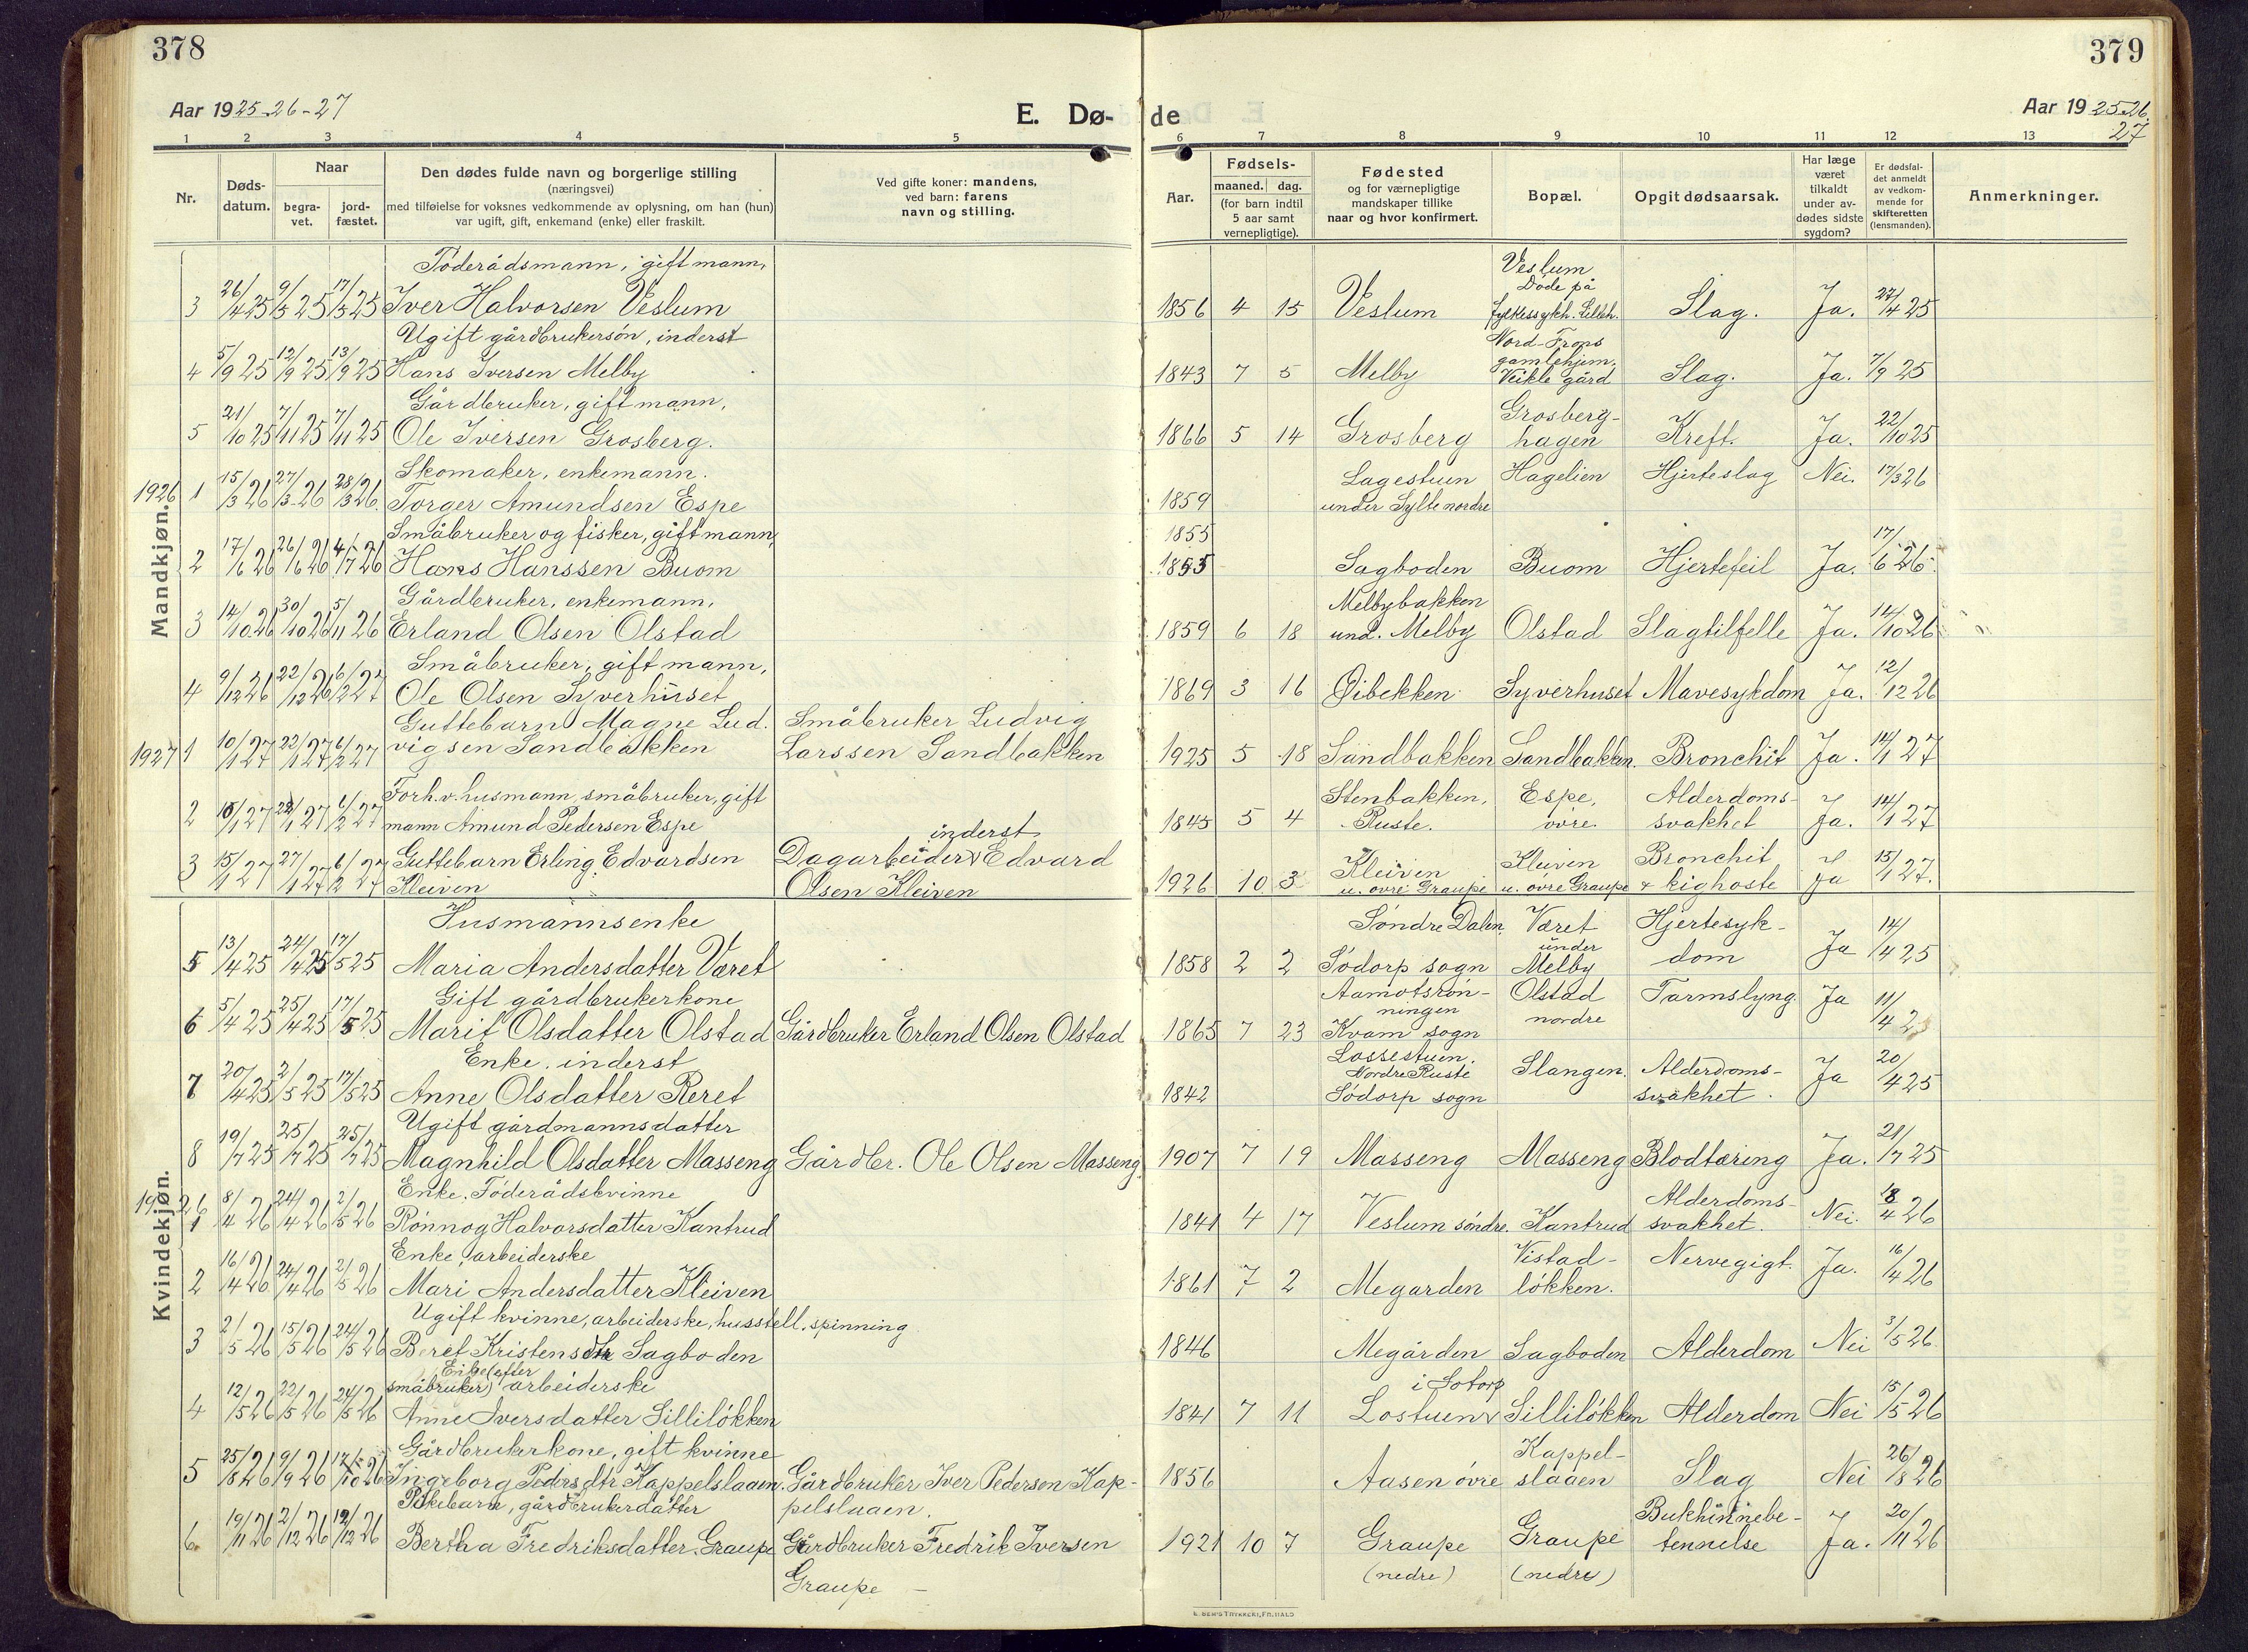 378
Aar 1925-26-27
E. Dø-
1 2 3 4 5
Nr.
Døds-
datum.
Naar
begra-
vet.
jord-
fæstet.
Den dødes fulde navn og borgerlige stilling
(næringsvei)
med tilføielse for voksnes vedkommende av oplysning, om han (hun)
var ugift, gift, enkemand (enke) eller fraskilt.
Ved gifte koner: mandens,
ved barn: farens
navn og stilling.
Mandkjøn.
Föderådsmann, gift mann,
3 26/4 25 9/5 25 17/5 25 Iver Halvorsen Veslum
Ugift gårdbrukersön, inderst
4 5/9 25 12/9 25 13/9 25 Hans Iversen Melby
Gårdbruker, gift mann,
5 21/10 25 7/11 25 7/11 25 Ole Iversen Grosberg.
Skomaker, enkemann.
1926 1 15/3 26 27/3 26 28/3 26. Torger Amundsen Espe
Småbruker og fisker, gift mann,
2 17/6 26 26/6 26 4/7 26 Hans Hanssen Buom
Gårdbruker, enkemann,
3 14/10 26 30/10 26 5/11 26 Erland Olsen Olstad
Småbruker, gift mann,
4 9/12 26 22/12 26 6/2 27 Ole Olsen Syverhuset
Guttebarn Magne Lud. Småbruker Ludvig
1927 1 10/1 27 22/1 27 6/2 27 vigsen Sandbakken Larssen Sandbakken
Forh.v. husmann, småbruker, gift
2 27 27 6/2 27 mann Amund Pedersen Espe
inderst
3 15/1 27 27/1 27 6/2 27 Guttebarn Erling Edvardsen Dagarbeider v Edvard
Kleiven Olsen Kleiven
Kvindekjøn.
Husmannsenke
5 13/4 25 24/4 25 17/5 25 Maria Andersdatter Været
Gift gårdbrukerkone
6 5/4 25 25/4 25 17/5 25 Marit Olsdatter Olstad Gårdbruker Erland Olsen Olstad
Enke, inderst
7 20/4 25 2/5 25 17/5 25 Anne Olsdatter Reret
Ugift gårdmannsdatter
8 19/7 25 25/7 25 25/7 25 Magnhild Olsdatter Masseng Gårdbr. Ole Olsen Masseng.
Enke. Föderådskvinne
1926 1 8/4 26 24/4 26 2/5 26 Rönnog Halvorsdatter Kantrud
Enke, arbeiderske
2 16/4 26 24/4 26 2/5 26 Mari Andersdatter Kleiven
Ugift kvinne, arbeiderske, husstell, spinning
3 2/5 26 15/5 26 24/5 26 Beret Kristensdtr Sagboden
Enke (efter
småbruker) arbeiderske
4 12/5 26 22/5 26 24/5 26 Anne Iversdatter Silliløkken
Gårdbrukerkone, gift kvinne
5 25/8 26 9/9 26 17/10 26 Ingeborg Pedersdtr Kappelslaaen. Gårdbruker Iver Pedersen Kap-
Pikebarn, gårdbrukerdatter pelslaaen.
6. 19/11 26 2/12 26 12/12 26 Bertha Fredriksdatter Graupe Gårdbruker Fredrik Iversen
Graupe –
379
Aar 1925-26.
27
de
6 7 8 9 10 11 12 13
Aar.
Fødsels-
maaned. dag.
(for barn indtil
5 aar samt
vernepligtige).
Fødested
og for værnepligtige
mandskaper tillike
naar og hvor konfirmert.
Bopæl.
Opgit dødsaarsak.
Har læge
været
tilkaldt
under av-
dødes sidste
sygdom?
Er dødsfal-
det anmeldt
av vedkom-
mende for
skifteretten
(lensmanden).
Anmerkninger.
Veslum
Döde på
1856 4 15 Veslum fylkessykh. Lilleh. Slag. Ja. 27/4 25
Nord-Frons
gamlehjem,
1843 7 5 Melby Veikle gård Slag. Ja. 7/9 25
Grosberg-
1866 5 14 Grosberg hagen Kreft. Ja. 22/10 25
Lagestuen Hagelien Hjerteslag Nei. 17/3 26
1859 under Sylte nordre
1855
1855 Sagboden Buom Hjertefeil Ja. 17/6 26.
Melbybakken
1859 6 18 und. Melby Olstad Slagtilfelle Ja. 14/10 26
1869 3 16 Öibekken Syverhuset Mavesykdom Ja. 12/12 26
1925 5 18 Sandbakken Sandbakken. Bronchit Ja. 14/1 27
Stenbakken, Espe, Alderdoms-
1845 5 4 Ruste. övre. svakhet Ja. 14/1 27
Kleiven Kleiven Bronchit
1926 10 3 u. övre Graupe u. övre Graupe & kighoste Ja 15/1 27.
Söndre Dalen, Været Hjertesyk-
under
1858 2 2 Södorp sogn Melby dom Ja 14/4 25
Aamotsrön- Olstad Tarmslyng. Ja 11/4 25
ningen nordre
1865 7 23 Kvam sogn
Lossestuen.
Nordre Ruste Slangen. Alderdoms- Ja 20/4 25
1842 Södorp sogn svakhet.
1907 7 19 Masseng Masseng Blodtæring Ja. 21/7 25
Alderdoms-
1841 4 17 Veslum söndre. Kantrud svakhet. Nei. 26
Vistad- Nervegigt. Ja. 16/4 26
1861 7 2 Megarden lökken.
1846 Megården Sagboden Alderdom Nei 3/5 26.
i Sotorp
1841 7 11 Lostuen v Silliløkken Alderdom Nei 15/5 26
Kappel-
1856 Aasen övre slaaen Slag Nei 26/8 26
Bukhinnebe-
1921 10 7 Graupe Graupe tennelse Ja. 20/11 26
(nedre) (nedre)